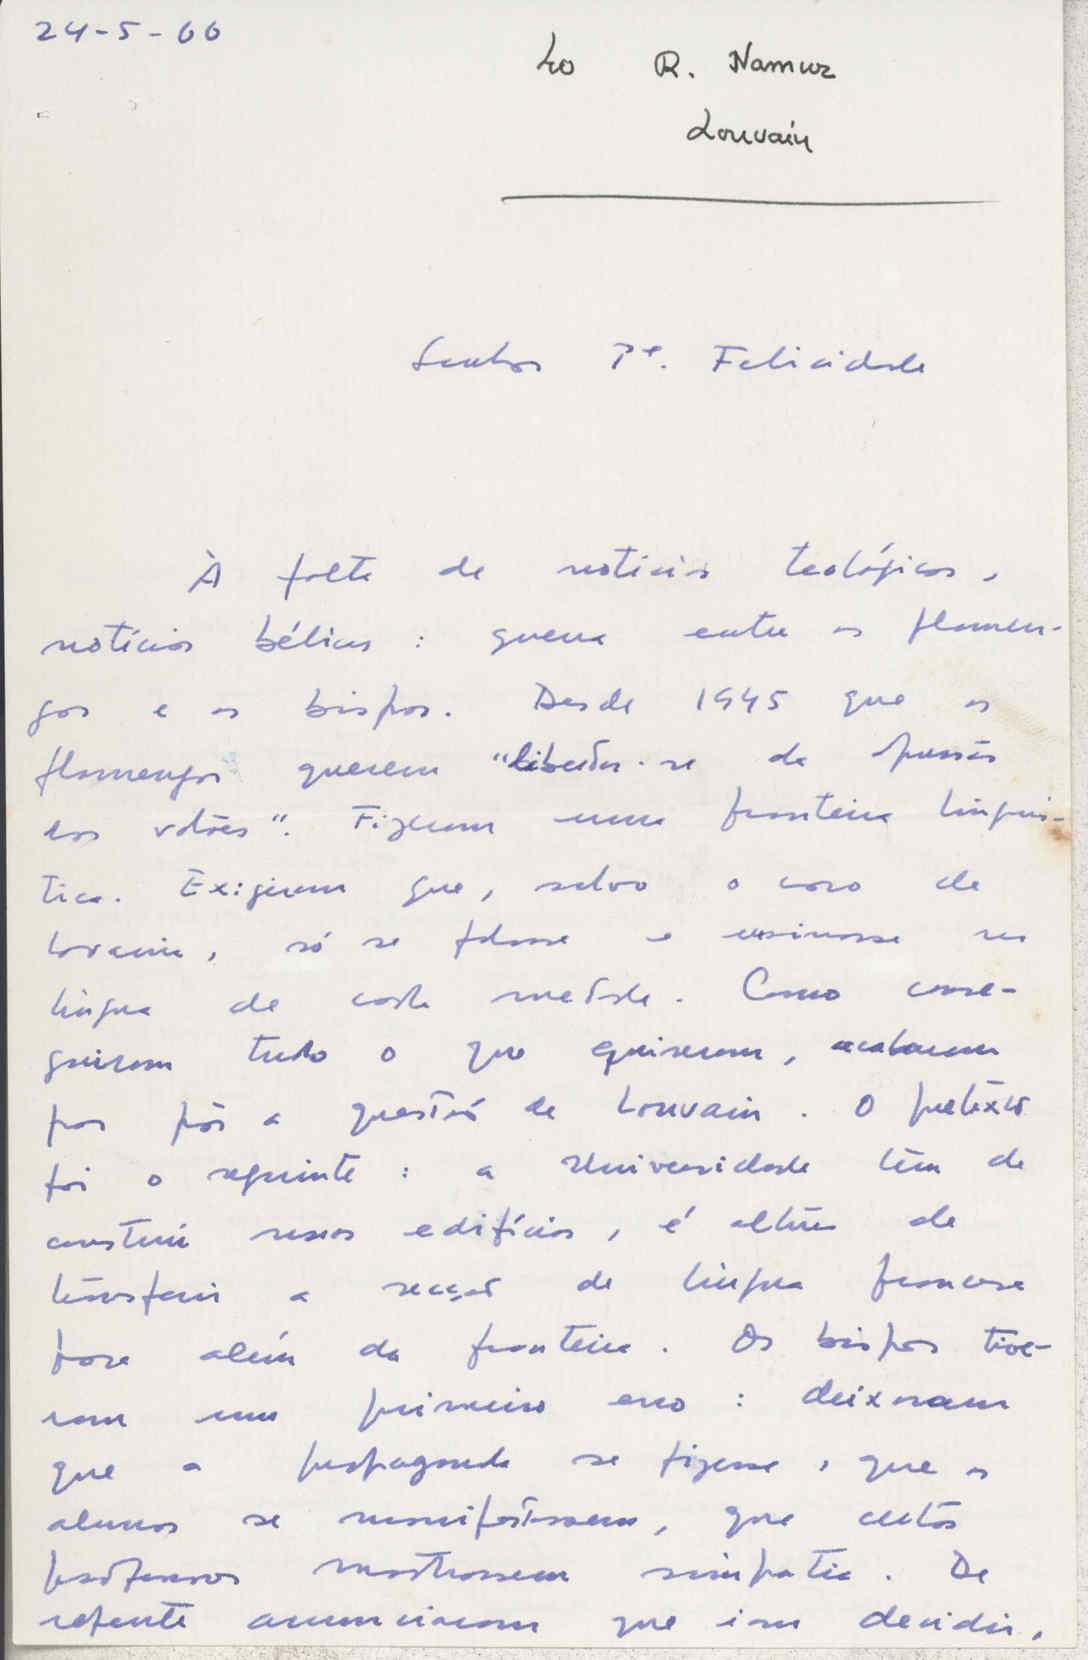 24-5-66
40 R. Namur
Louvain
Senhor Pe. Felicidade
À falta de notícias teológicas,
notícias bélicas: guerra entre os flamen-
gos e os bispos. Desde 1945 que os
flamengos querem "libertar-se da opressão
dos valões". Fizeram uma fronteira linguís-
tica. Exigiram que, salvo o caso de
Lovaina, só se falasse e ensinasse na
língua de cada metade. Como conse-
guiram tudo o que quiseram, acabaram
por pôr a questão de Louvain. O pretexto
foi o seguinte: a Universidade tem de
construir novos edifícios, é altura de
transferir a secção de língua francesa
para além da fronteira. Os bispos tive-
ram um primeiro erro: deixaram
que a propaganda se fizesse, que os
alunos se manifestassem, que certos
professores mostrassem simpatia. De
repente anunciaram que iam decidir,